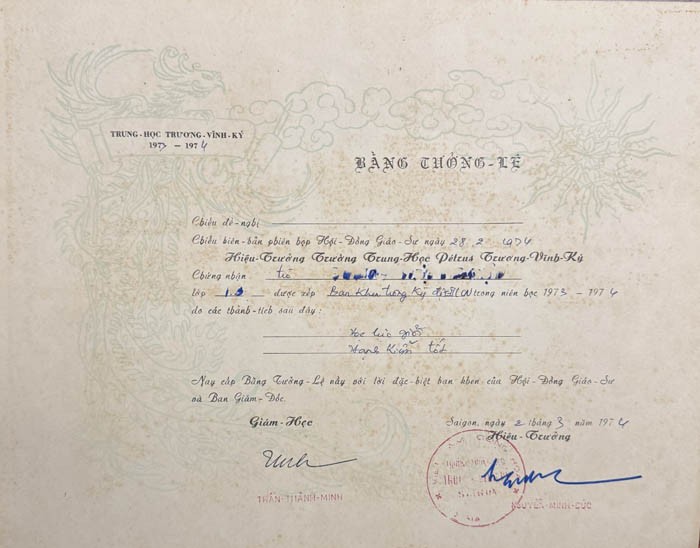 TRUNG-HỌC TRƯƠNG-VĨNH-KÝ
1973 - 1974
BẰNG TƯỞNG-LỆ
Chiếu đề-nghị
Chiếu biên-bản phiên họp Hội-Đồng Giáo-Sư ngày 28.2.1974
Hiệu-Trưởng Trường Trung-Học Pétrus Trương-Vĩnh-Ký
Chứng nhận
lớp được xếp Ban Khen trong Kỳ trong niên học 1973 - 1974
do các thành-tích sau đây:
Học lực giỏi
Hạnh Kiểm tốt
Nay cấp Bằng Tưởng-Lệ này với lời đặc-biệt ban khen của Hội-Đồng Giáo-Sư
và Ban Giám-Đốc.
Giám-Học
Saigon, ngày 2 tháng 3 năm 1974
Hiệu-Trưởng
TRẦN-THÀNH-MINH
NGUYỄN-MINH-ĐỨC